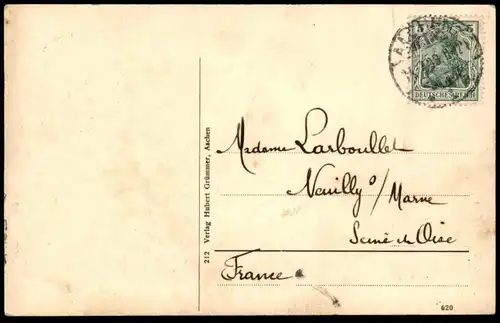 5
AACHEN
DEUTSCHES REICH
Madame Larboullet
Neuilly s/ Marne
Seine et Oise
France
212 Verlag Hubert Grümmer, Aachen
620